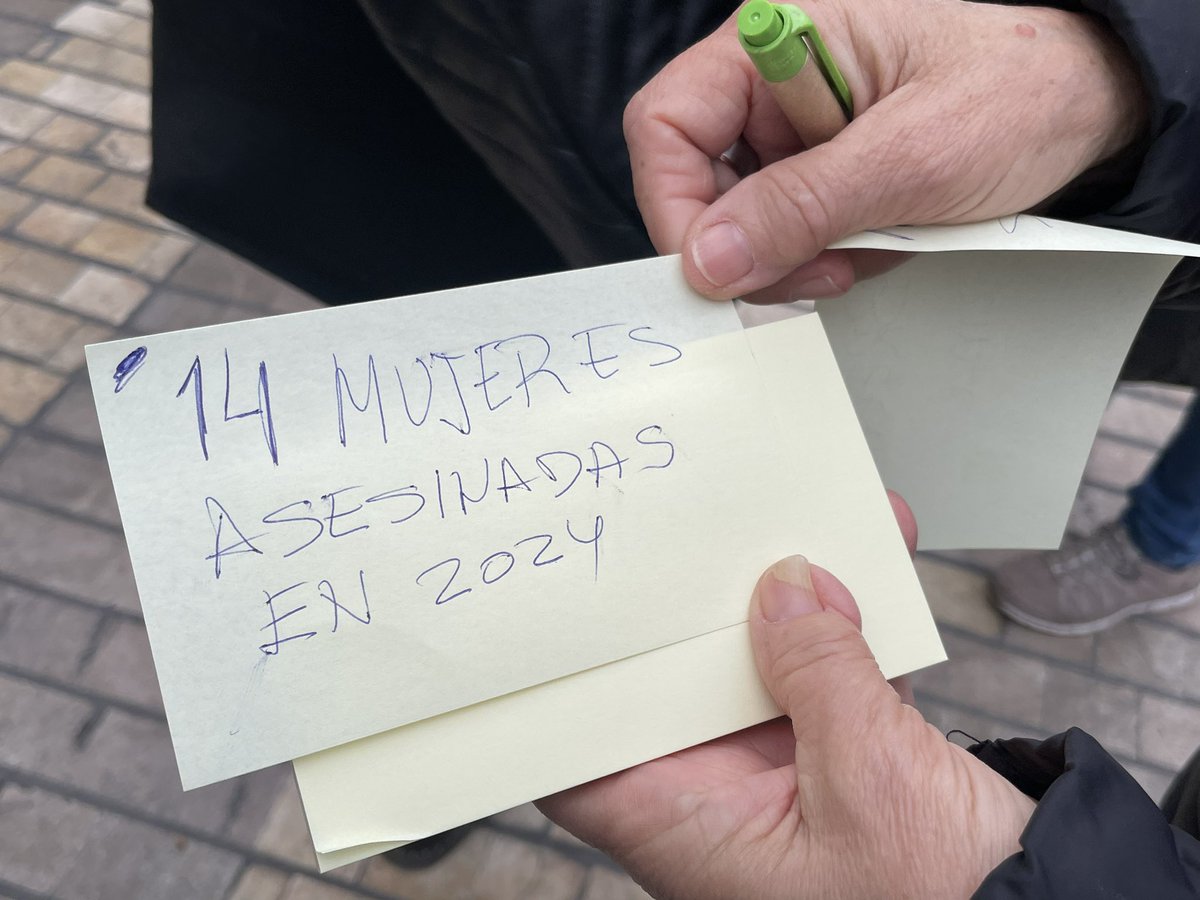 14 MUJERES
ASESINADAS
EN 2024